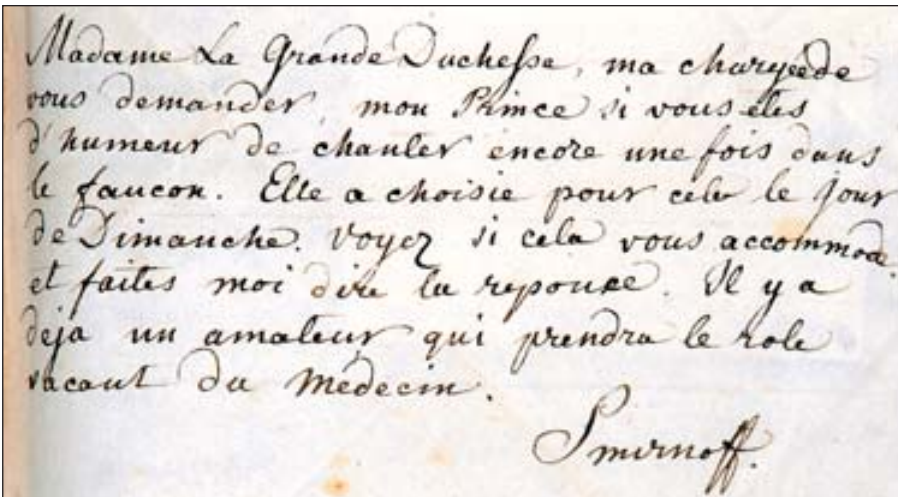 Madame La Grande Duchesse, ma chargée de
vous demander, mon Prince si vous etes
d'humeur de chanter encore une fois dans
le faucon. Elle a choisie pour cela le jour
de Dimanche. Voyez si cela vous accommode.
et faites moi dire la reponse. Il y a
deja un amateur qui prendra le role
vacant du Médecin.
Smirnoff.